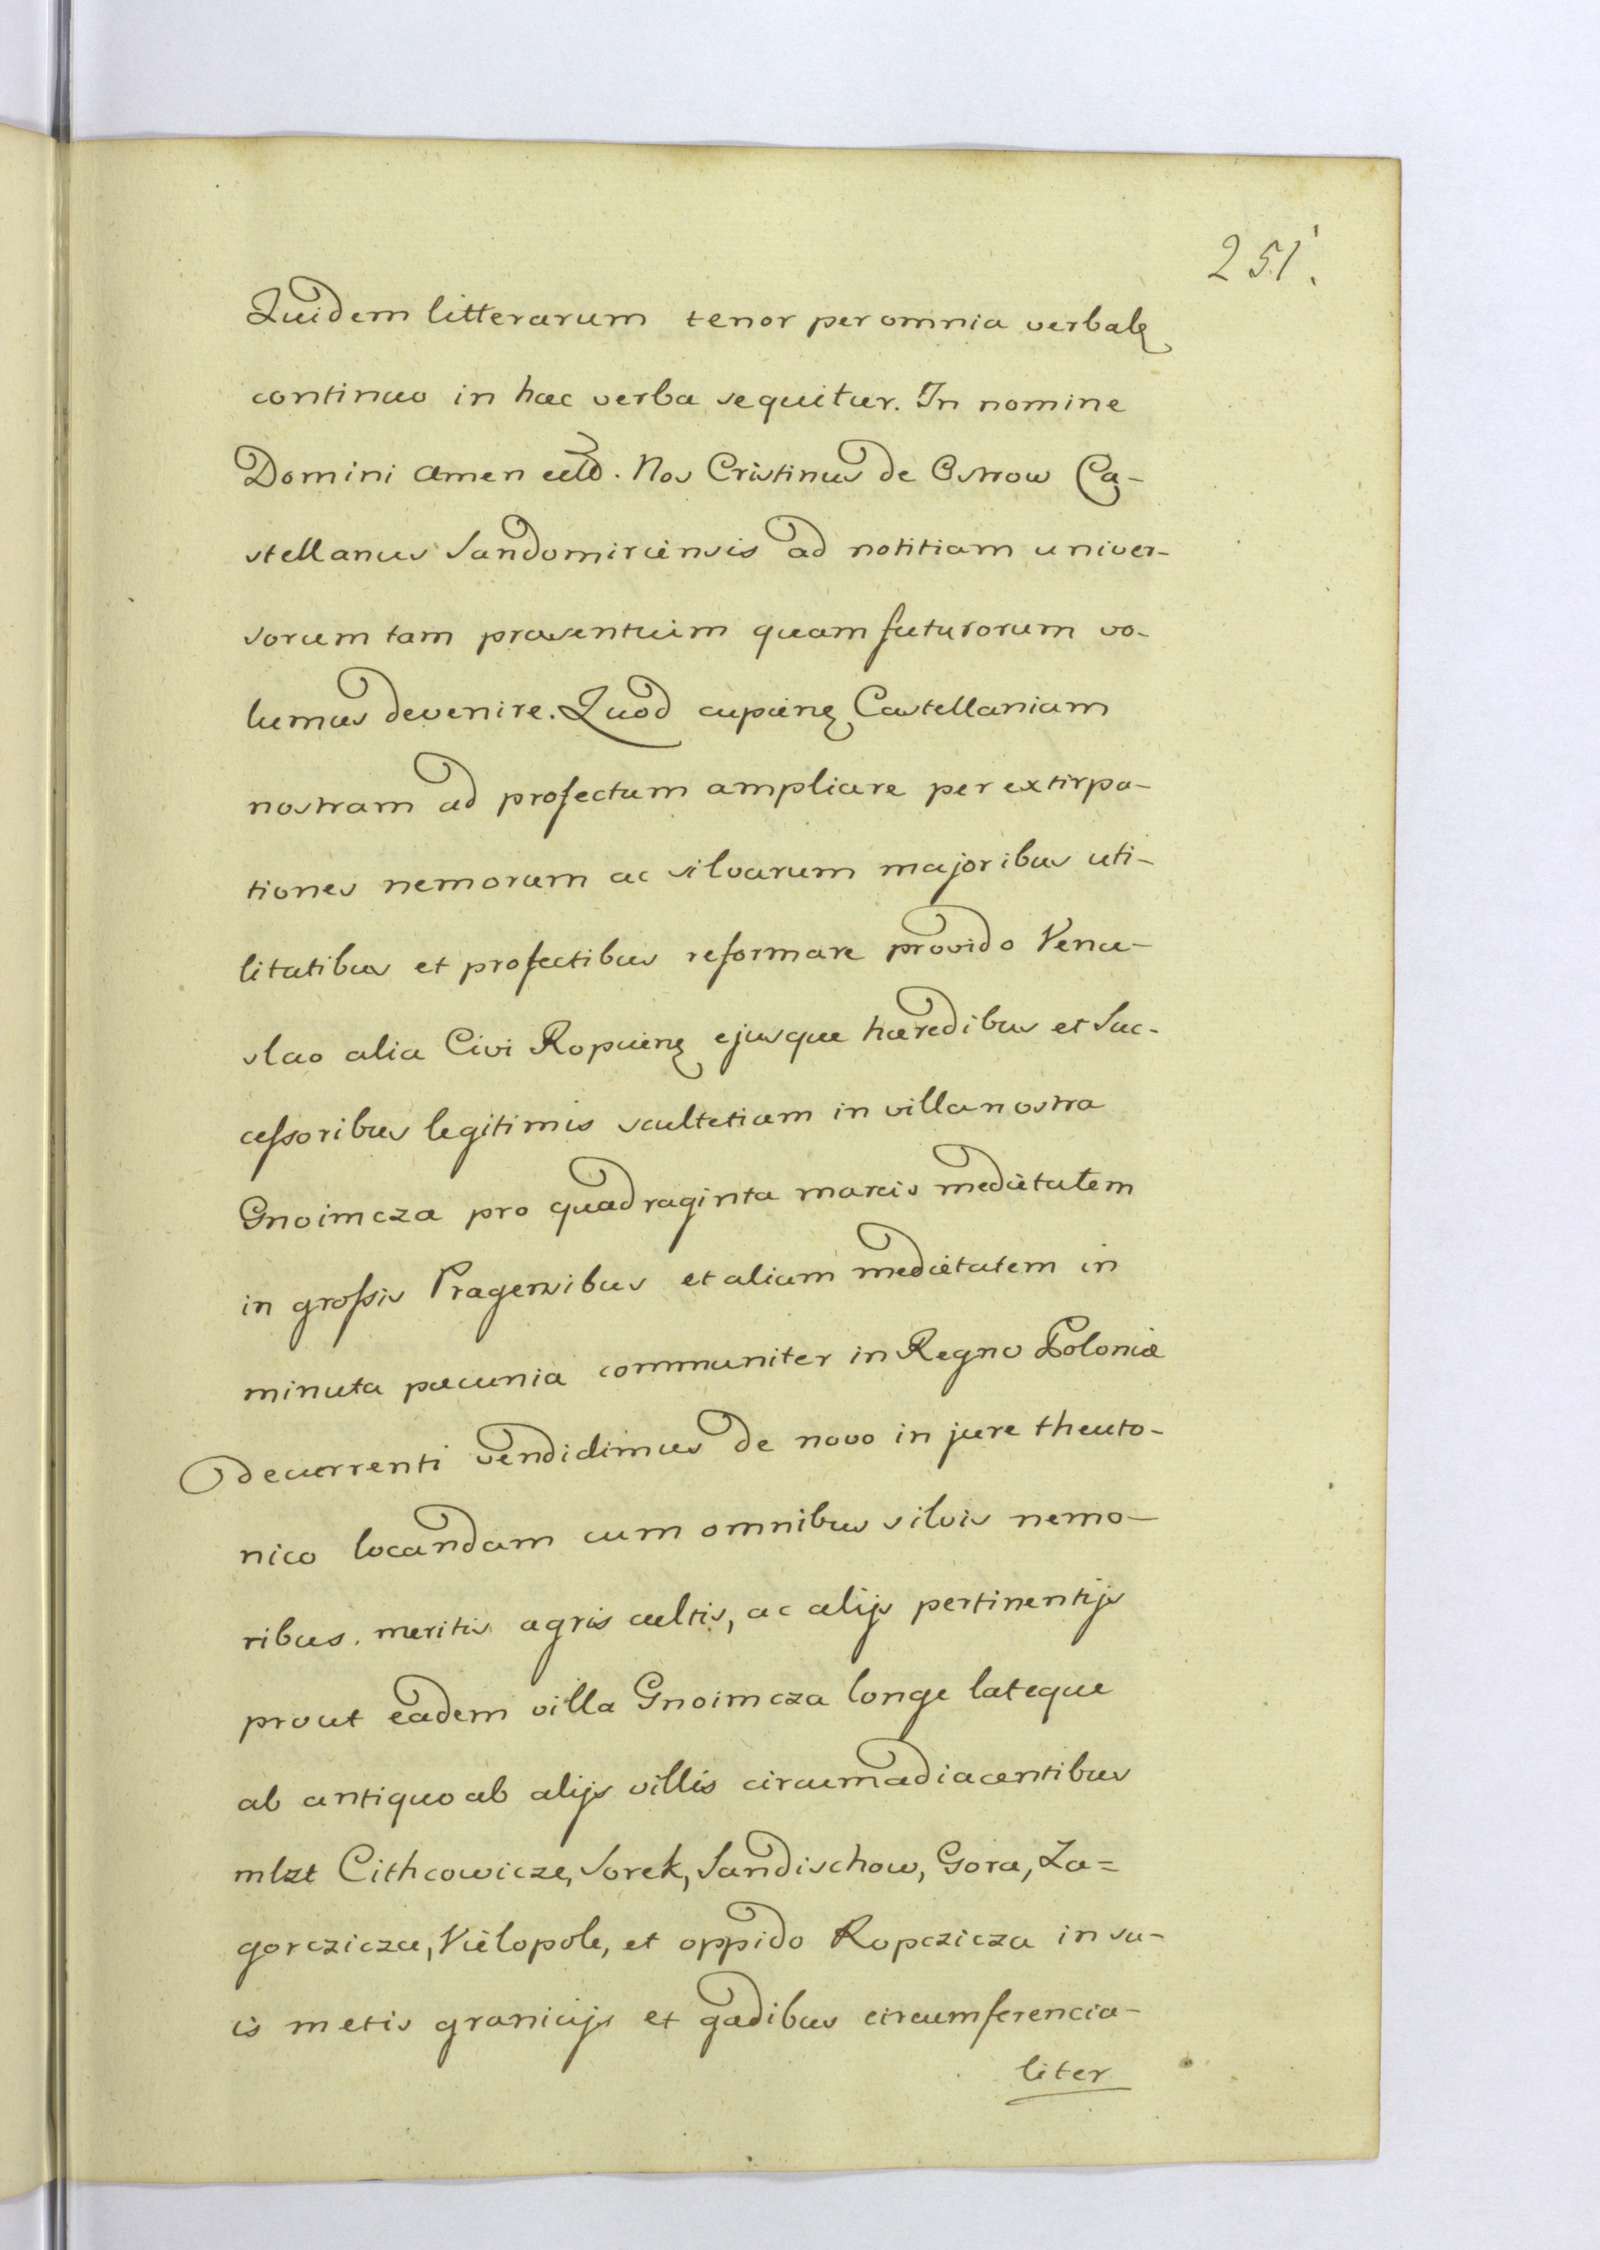 251.
Quidem litterarum tenor per omnia verbalꝫ
continuo in hæc verba sequitur. In nomine
Domini Amen. Nos Cristinus de Ostrow Ca-
stellanus Sandomiriensis ad notitiam univer-
sorum tam præsentium quam futurorum vo-
lumus devenire. Quod cupienꝫ Castellaniam
nostram ad profectum ampliare per extirpa-
tiones nemorum ac silvarum majoribus uti-
litatibus et profectibus reformare provido Vence-
slao alia Civi Ropcienꝫ ejusque hæredibus et Suc-
cessoribus legitimis scultetiam in villa nostra
Gnoimcza pro quadraginta marcis medietatem
in grossis Pragensibus et aliam medietatem in
minuta pæcunia communiter in Regno Poloniæ
decurrenti vendidimus de novo in jure theuto-
nico locandam cum omnibus silvis nemo-
ribus. meritis agris cultis, ac alijs pertinentijs
prout eadem villa Gnoimcza longe lateque
ab antiquo ab alijs villis circumadiacentibus
mlzt Cithcowicze, Sorek, Sandischow, Gora, Za=
gorczicza, Vielopole, et oppido Ropczicza in su-
is metis granicijs et gadibus circumferencia-
liter